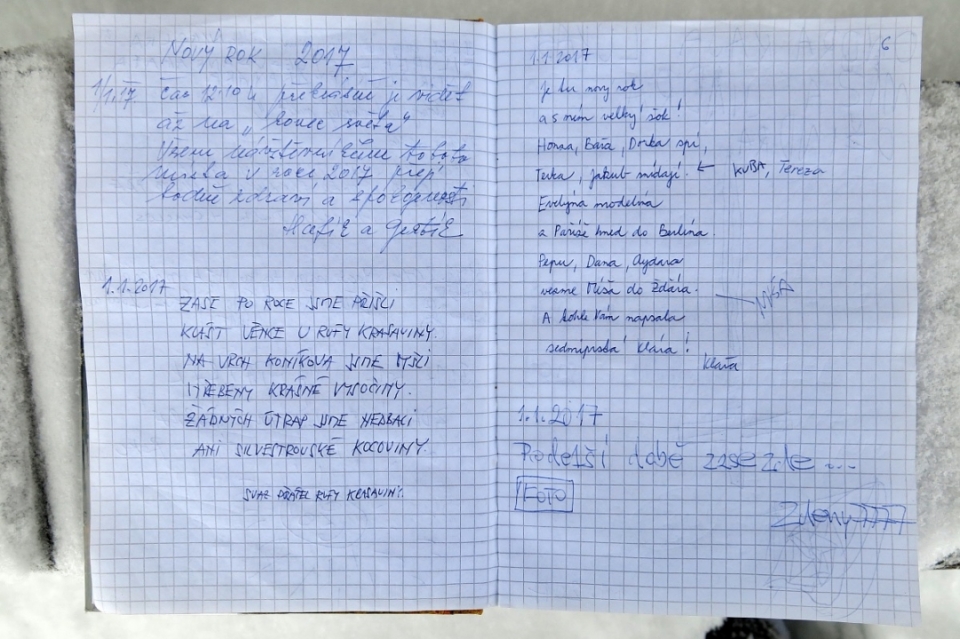 NOVÝ ROK 2017
1/1.17 Čas 12.10 h. překrásně je vidět
až na „konec světa“
Všem návštěvníkům tohoto
místa v roce 2017 přejí
hodně zdraví a spokojenosti
a
1.1.2017
ZASE PO ROCE JSME PŘIŠLI
KLÁST VĚNCE U RUTY KRASAVINY.
NA VRCH KONÍKOVA JSME VYŠLI
HŘEBENY KRÁSNÉ VYSOČINY.
ŽÁDNÝCH ÚTRAP JSME NEDBALI
ANI SILVESTROVSKÉ KOCOVINY.
SVAZ PŘÁTEL RUTY KRASAVINY.
6
1.1.2017
Je tu nový rok
a s ním velký šok!
Honza, Bára, Dorka spí,
Terka, Jakub mládají. ← KUBA, Tereza
Evelýna modelína
a Paříže hned do Berlína.
Pepu, Dana, Aydara
vezme Míša do Žďára. MÍŠA
A tohle Vám napsala
sedmiprská Klára!
Klára
1.1.2017
Po delší době zase zde...
FOTO
Zdeny7777